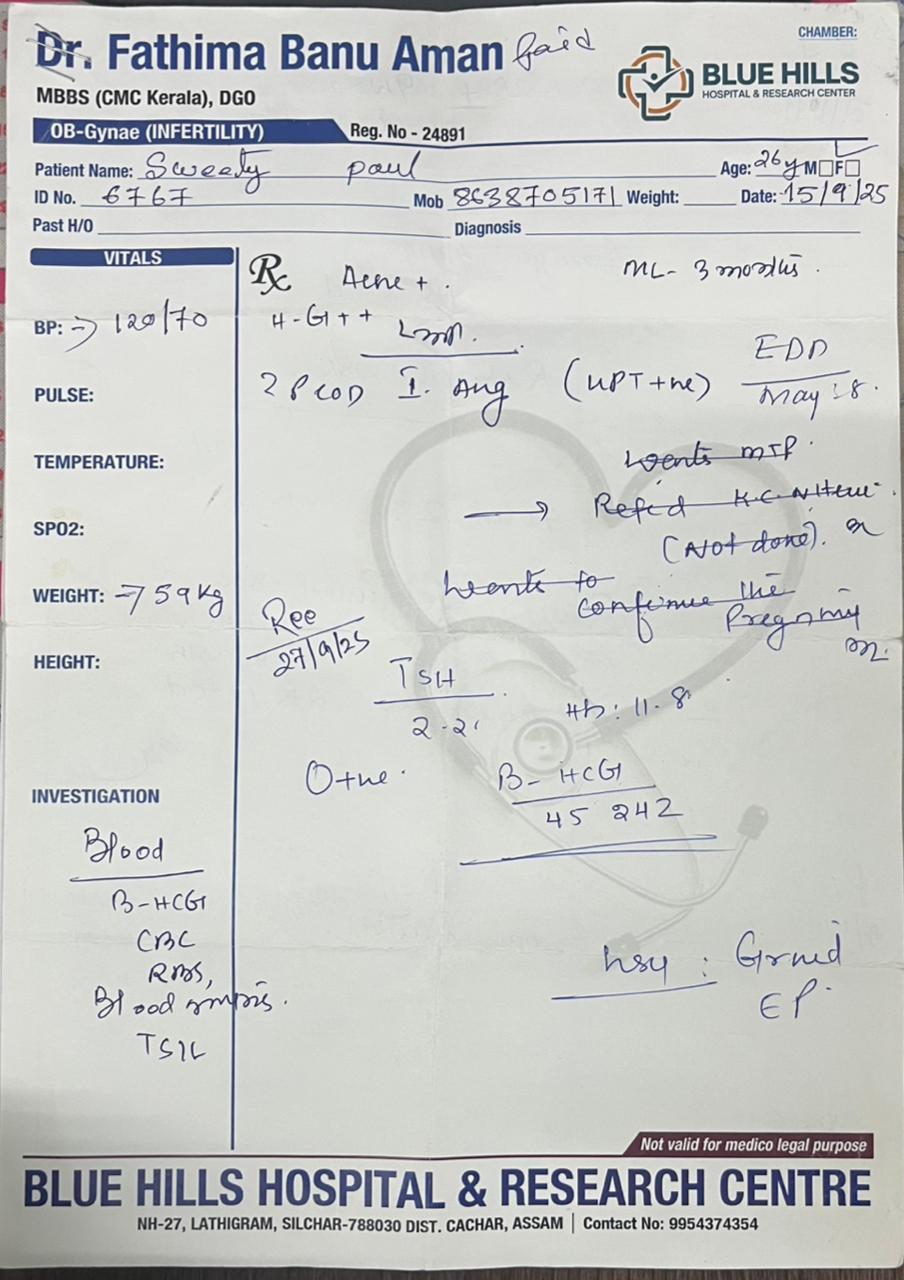 Dr. Fathima Banu Aman paid
MBBS (CMC Kerala), DGO
OB-Gynae (INFERTILITY) Reg. No - 24891
CHAMBER:
BLUE HILLS
HOSPITAL & RESEARCH CENTER
Patient Name: Sweety paul Age: 26y M F
ID No. 6767 Mob 8638705171 Weight: Date: 15/9/25
Past H/O Diagnosis
VITALS
BP: → 120/70
PULSE:
TEMPERATURE:
SPO2:
WEIGHT: → 59 kg
HEIGHT:
INVESTIGATION
Blood
B-HCG
CBC
RBS,
Blood
TSH
Rx Acne +. ML- 3 months.
H-G++ LMP.
? PCOD 1. Aug (UPT +ve) EDD
May 8.
Wants MTP.
→ Ref'd
(Not done).
wants to
continue the
Pregnancy
27/9/25
TSH
2.21
Hb: 11.8
O+ve.
B-HCG
45 242
: Gravid
EP.
Not valid for medico legal purpose
BLUE HILLS HOSPITAL & RESEARCH CENTRE
NH-27, LATHIGRAM, SILCHAR-788030 DIST. CACHAR, ASSAM | Contact No: 9954374354